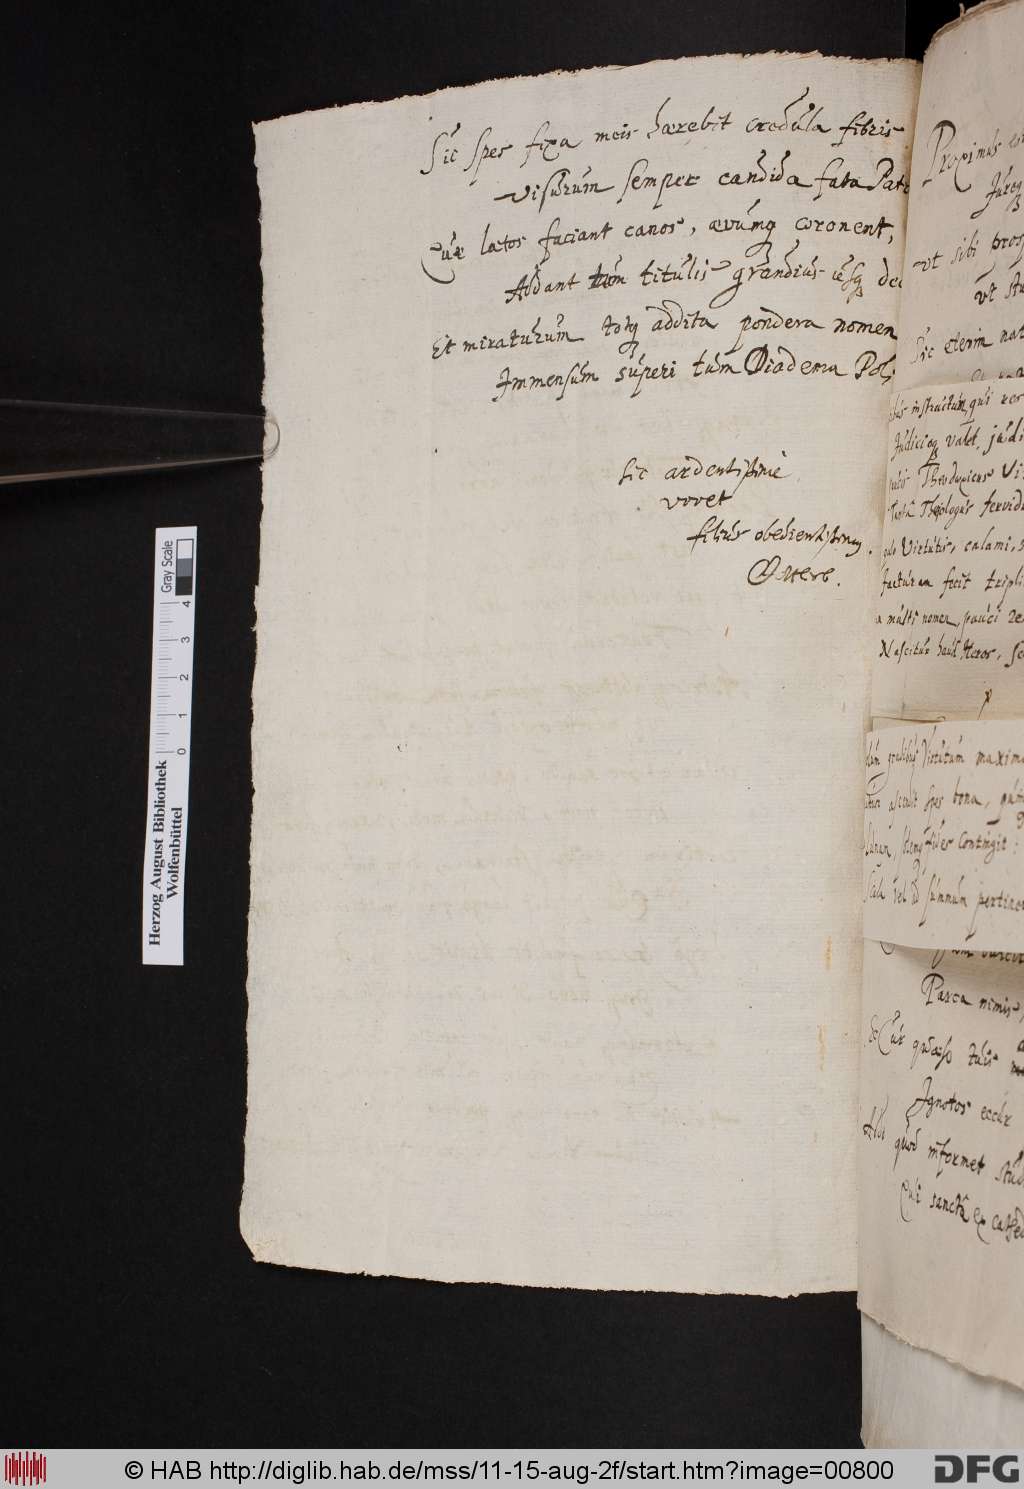 Sic spes fixa meis hærebit credula fibris
Visurum semper candida fata Pat
Quæ lætos faciant canos, ævumq coronent,
Addant tum titulis grandius usq dec
Et miraturum totq addita pondera nomen
Immensum superi tum Diadema Poli
Sic ardentissimè
vovet
filius obedientissimus.
Proximus
ut sibi prosp
ut stu
Sic etenim nat
instructum, qui ver
Judicioq valet, judi
Theologus fervidu
Virtutis, calami,
facturam fecit tripli
multi nomen, pauci
Nascitur haud Heros, se
gradibus Virtutum maxima
ascendit spes bona,
fides contingit:
vel ad summum pertinet
Parca nimis,
Cur quæso tuis
Ignotos
quod informet stud
Cui sancta ex cathed
Gray Scale
0 1 2 3 4
Herzog August Bibliothek
Wolfenbüttel
© HAB http://diglib.hab.de/mss/11-15-aug-2f/start.htm?image=00800
DFG